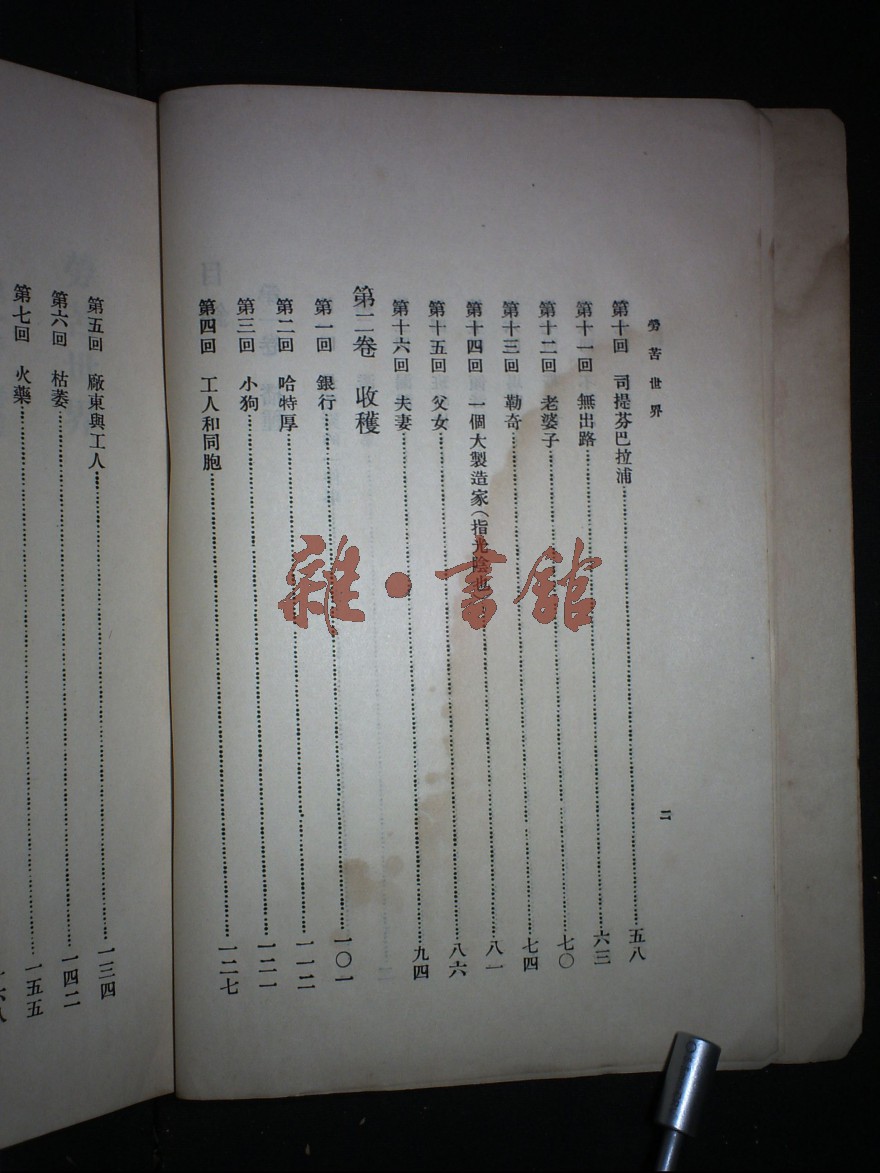 勞苦世界
二
第十回 司提芬巴拉浦……五八
第十一回 無出路……六三
第十二回 老婆子……七〇
第十三回 勒奇……七四
第十四回 一個大製造家(指光陰也……八一
第十五回 父女……八六
第十六回 夫妻……九四
第二卷 收穫
第一回 銀行……一〇一
第二回 哈特厚……一一二
第三回 小狗……一二一
第四回 工人和同胞……一二七
第五回 廠東與工人……一三四
第六回 枯萎……一四二
第七回 火藥……一五五
雜·書館